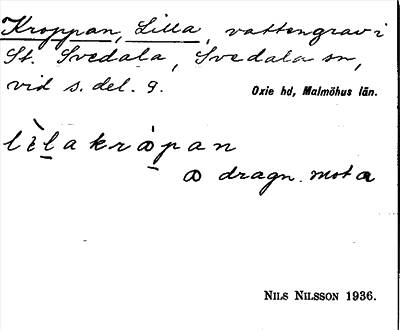 Kroppan, Lilla, vattengrav i
St. Svedala, Svedala sn,
vid s. del. 9.
Oxie hd, Malmöhus län.
lìlakrȯpan
ꝏ dragn. mot a
NILS NILSSON 1936.